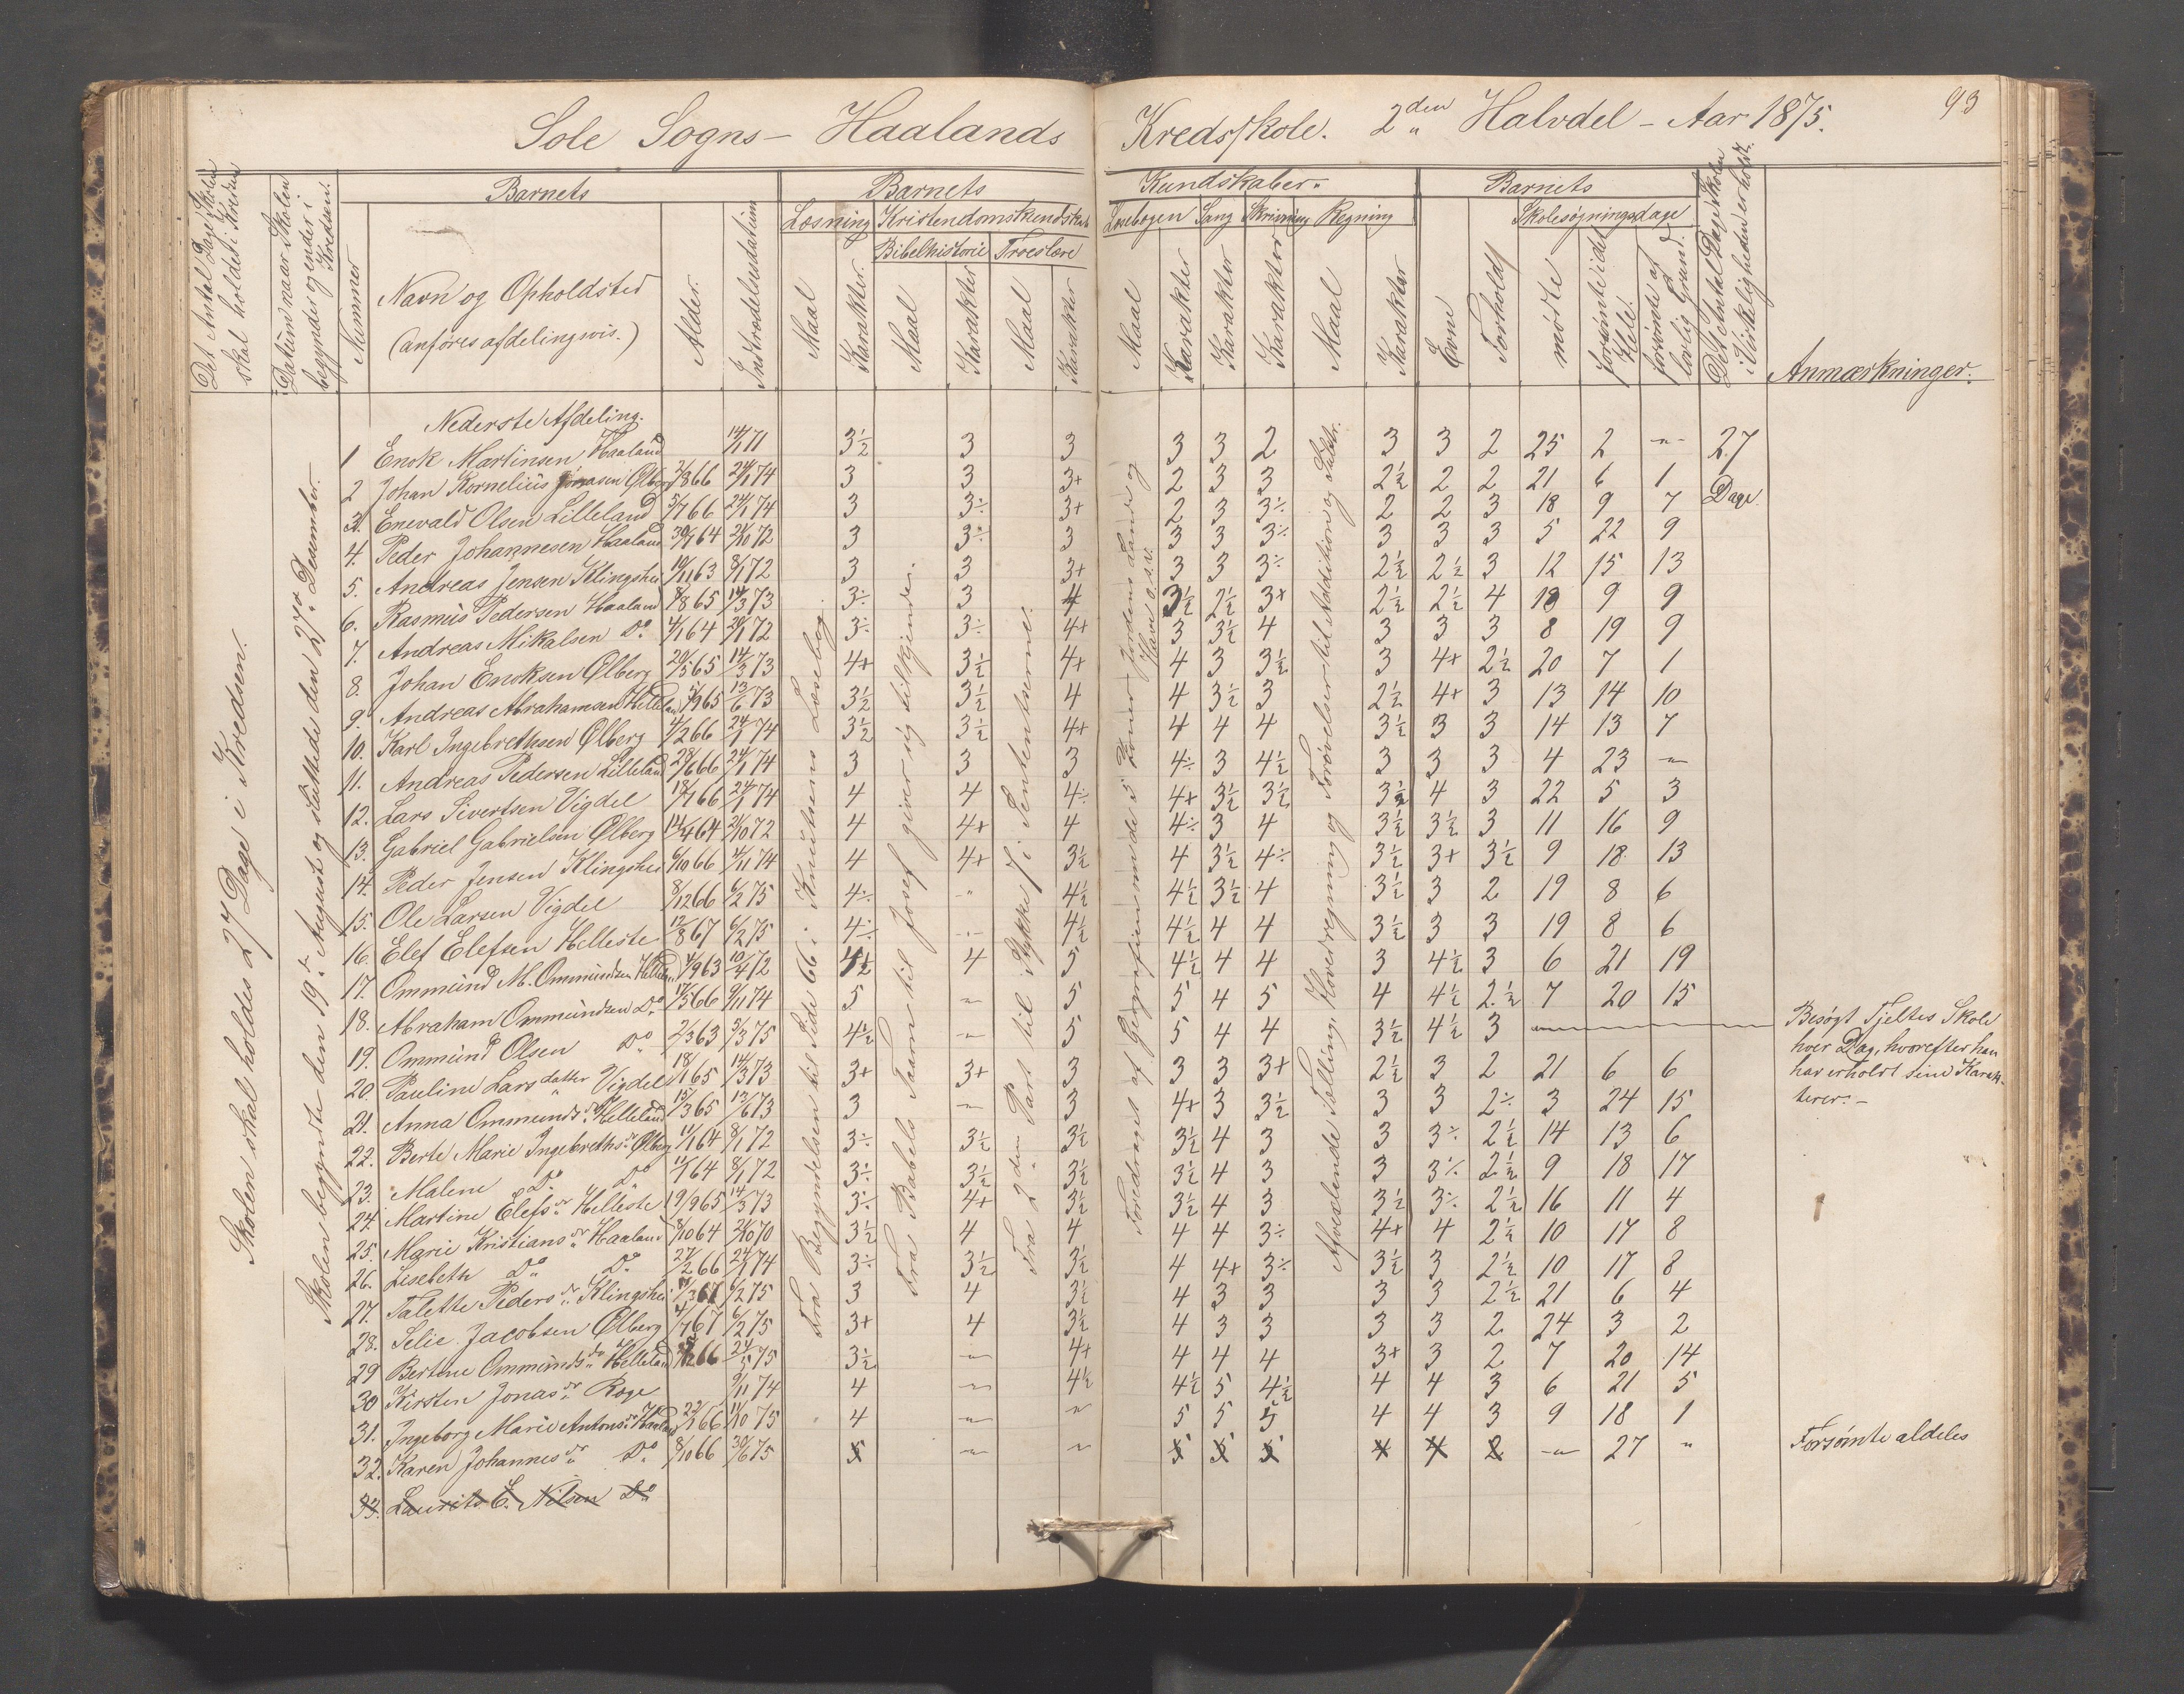 93
Sole Sogns – Haalands Kredsskole. 2den Halvdel – Aar 1875.
Det Antal Dage Skolen skal holdes i Kredsen
Datum naar Skolen begynder og ender i Kredsen.
Nummer
Barnets
Navn og Opholdsted
(anføres afdelingsvis.)
Alder.
Indtrædelsesdatum
Barnets Kundskaber.
Læsning Kristendomskundskab Læsebogen Sang Skrivning Regning
Bibelhistorie Troeslære
Maal Karakter Maal Karakter Maal Karakter Maal Karakter Karakter Karakter Maal Karakter
Barnets
Evne Forhold
Skolesøgningsdage
mødte
forsømte i det Hele.
forsømte af lovlig Grund.
Det Antal Dage Skolen i Virkeligheden er holdt.
Anmærkninger.
Skolen skal holdes 27 Dage i Kredsen.
Skolen begyndte den 19de August og sluttede den 27de Desember.
Fra Begyndelsen til Side 66 i Knutsens Læsebog.
Fra Babels Taarn til Josef giver sig tilkjende.
Fra 2den Part til Stykke 7 i Sententserne.
Foredraget af Geografien med de 5 Zoner, Jordens Lande og Have o.s.v.
Afvexlende Tælling, Hovedregning og Forøvelser til Addition og Subtr.
Nederste Afdeling.
1 Enok Martinsen Haaland 14/1 71 3½ 3 3 3 3 2 3 3 2 25 2 -"- 27
2 Johan Kornelius Jonasen Ølberg 2/8 66 24/1 74 3 3 3+ 2 3 3 2½ 2 2 21 6 1 Dage
3. Enevald Olsen Lilleland 5/7 66 24/1 74 3 3÷ 3+ 2 3 3÷ 2 2 3 18 9 7
4. Peder Johannesen Haaland 30/7 64 21/10 72 3 3÷ 3 3 3 3÷ 3 3 3 5 22 9
5. Andreas Jensen Klingshei 10/11 63 8/1 72 3 3 3+ 3 3 3÷ 2½ 2½ 3 12 15 13
6. Rasmus Pedersen Haaland 8/8 65 14/3 73 3÷ 3 4 3½ 2½ 3+ 2½ 2½ 4 18 9 9
7. Andreas Mikalsen Do 4/1 64 20/1 72 3÷ 3÷ 4+ 3 3½ 4 3 3 3 8 19 9
8. Johan Enoksen Ølberg 20/5 65 14/3 73 4+ 3½ 4+ 4 3 3½ 3 4+ 2½ 20 7 1
9. Andreas Abrahamsen Helleland 9 65 13/6 73 3½ 3½ 4 4 3½ 3 2½ 4+ 3 13 14 10
10. Karl Ingebrethsen Ølberg 4/2 66 24/1 74 3½ 3½ 4+ 4 4 4 3½ 3 3 14 13 7
11. Andreas Pedersen Lilleland 28/6 66 24/1 74 3 3 3 4÷ 3 4½ 3 3 3 4 23 -"-
12. Lars Sivertsen Vigdel 18/7 66 24/1 74 4 4 4÷ 4+ 3½ 3½ 3½ 4 3 22 5 3
13. Gabriel Gabrielsen Ølberg 14/4 64 21/10 72 4 4+ 4 4÷ 3 4 3½ 3½ 3 11 16 9
14. Peder Jensen Klingshei 6/10 66 4/11 74 4 4+ 3½ 4 3½ 4÷ 3½ 3+ 3½ 9 18 13
15. Ole Larsen Vigdel 8/12 66 6/2 75 4÷ " 4½ 4½ 3½ 4 3½ 3 2 19 8 6
16. Elef Elefsen Helleste 12/8 67 6/2 75 4÷ -"- 4½ 4½ 4 4 3½ 3 3 19 8 6
17. Ommund M. Ommundsen Helleland 4/9 63 10/4 72 4½ 4 5 4½ 4 4 3 4½ 3 6 21 19
18. Abraham Ommundsen Do 17/5 66 9/11 74 5 -"- 5 5 4 5 4 4½ 2½ 7 20 15
19. Ommund Olsen Do 2/3 63 5/3 75 4½ -"- 5 5 4 4 3½ 4½ 3 -"- Besøgt Tjeltes Skole
hver Dag, hvorefter han
har erholdt sine Karak-
terer. –
20. Pauline Larsdatter Vigdel 18/1 65 14/3 73 3+ 3+ 3 3 3 3+ 2½ 3 2 21 6 6
21. Anna Ommundsdr Helleland 15/3 65 13/6 73 3 -"- 3 4+ 3 3½ 3 3 2÷ 3 24 15
22. Berte Marie Ingebrethsdr Ølberg 11/1 64 8/1 72 3÷ 3½ 3½ 3½ 4 3 3 3÷ 2½ 14 13 6
23. Malene Do Do 11/1 64 8/1 72 3÷ 3½ 3½ 3½ 4 3 3 3÷ 2½ 9 18 17
24. Martine Elefsdr Helleste 19/9 65 14/3 73 3÷ 4+ 3½ 3½ 4 3 3½ 3÷ 2½ 16 11 4
25. Marie Kristiansdr Haaland 8/10 64 21/10 70 3½ 4 4 4 4 3÷ 4+ 4 2½ 10 17 8
26. Lisebeth Do Do 27/2 66 24/1 74 3÷ 3½ 3½ 4 4+ 3÷ 3½ 3 2½ 10 17 8
27. Talette Pedersdr Klingshei 67 6/2 75 3 4 3½ 4 3 3 3 3 2½ 21 6 4
28. Selie Jacobsen Ølberg 4/7 67 6/2 75 3+ 4 3½ 4 3 3 3 3 2 24 3 2
29 Bertine Ommundsdr Helleland 66 24/5 75 3½ -"- 4+ 4 4 4 3+ 3 2 7 20 14
30 Kirsten Jonasdr Roge 9/11 74 4 -"- 4½ 4½ 5 4½ 4 4 3 6 21 5
31. Ingeborg Marie Antonsdr Haaland 22/1 66 11/10 75 4 -"- " 5 5 5 4 4 3 9 18 1
32. Karen Johannesdr Do 8/10 66 30/6 75 5 -"- " 5 5 5 4 4 2 -"- 27 " Forsømte aldeles
33. Laurits C. Nilsen Do